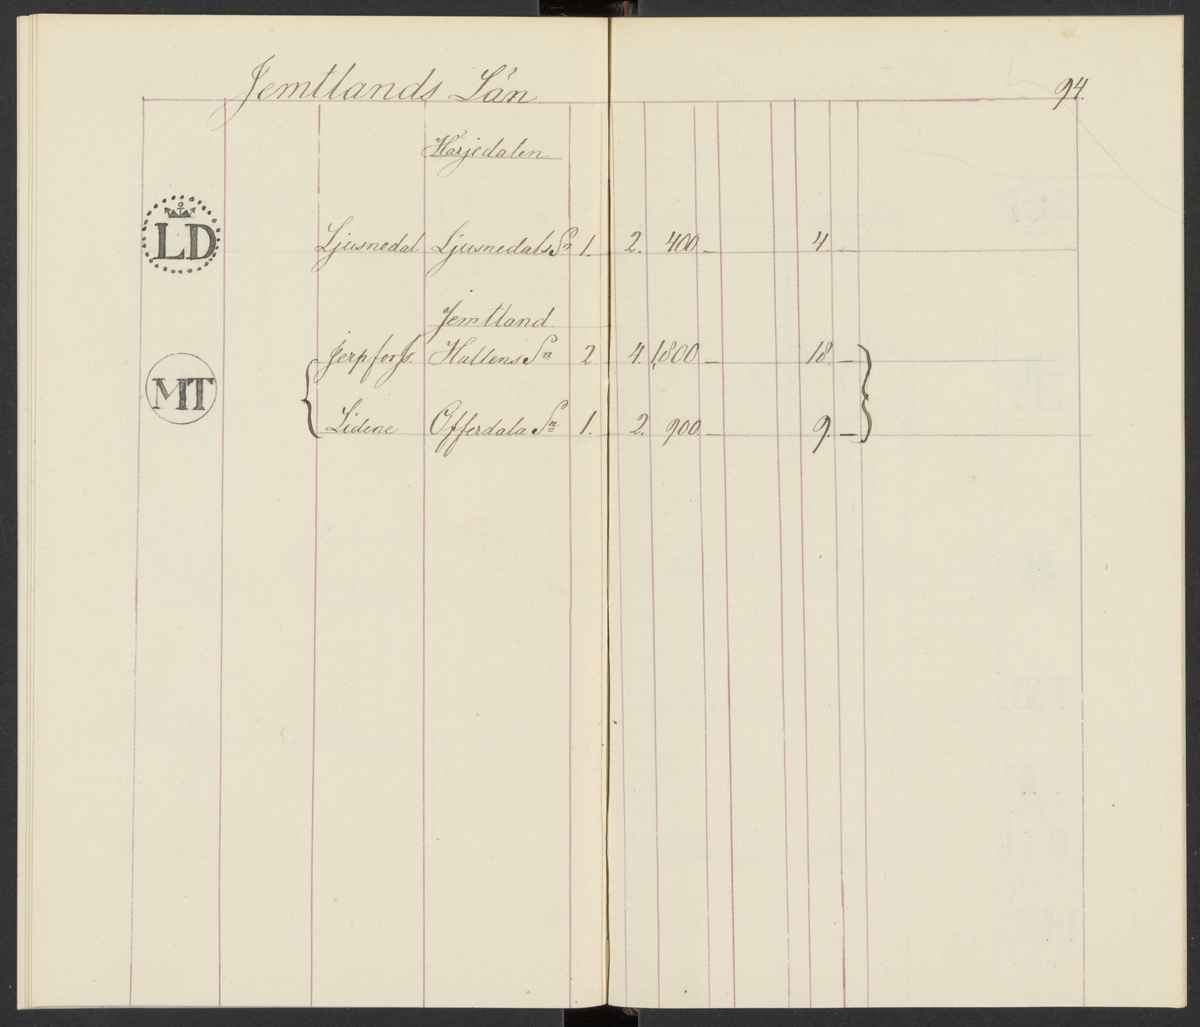 Jemtlands Län 94.
Härjedalen
LD Ljusnedal Ljusnedals Sn 1. 2. 400 — 4. —
Jemtland.
Jerpforss. Hallens Sn 2 4. 1,800 — 18. —
MT
Lidene Offerdala Sn 1. 2. 900 — 9. —